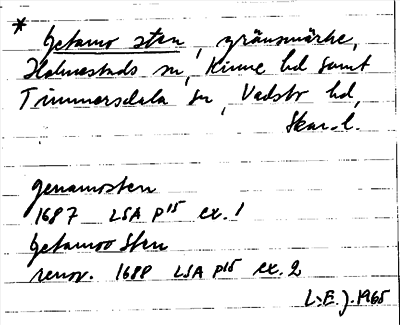 * Getamo sten, gränsmärke,
Holmestads sn, Kinne hd samt
Timmersdala sn, Vadsbo hd,
Skar. l.
genamosten
1687 LSA P15 ex. 1
Getamoo Sten
renov. 1688 LSA P15 ex. 2
L.E.J. 1965